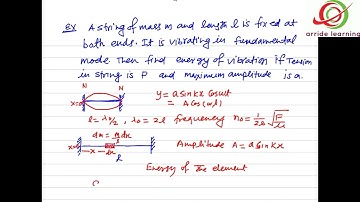 arride learning
Ex A string of mass m and length l is fixed at
both ends. It is vibrating in fundamental
mode then find energy of vibration if Tension
in string is F and maximum amplitude is a.
N N
x=0
y = a sin kx cos ωt
= A cos (ωt)
l = λ₀/2, λ₀ = 2l frequency n₀ = 1/2l √F/μ
dm = m/l dx
x=0 x dx
l
Amplitude A = a sin kx
Energy of the element